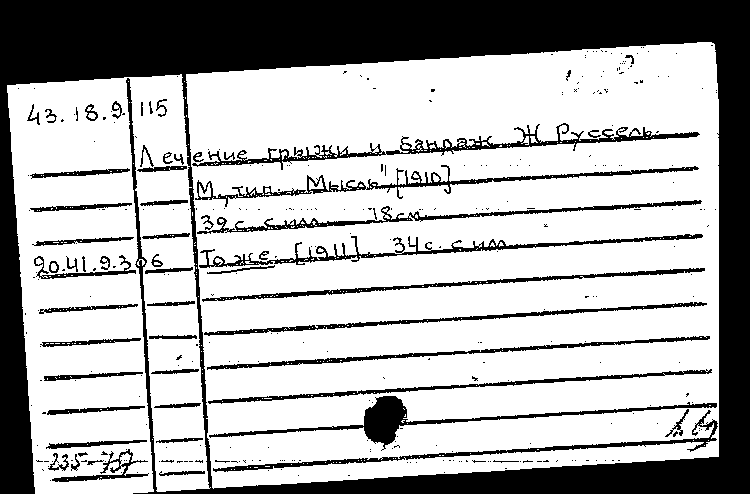 43.18.9.115
Лечение грыжи и бандаж Ж Руссель.
М., тип. "Мысль", [1910]
39 с. с илл. 18 см.
20.41.9.306 То же. [1911]. 34 с. с илл.
235-757